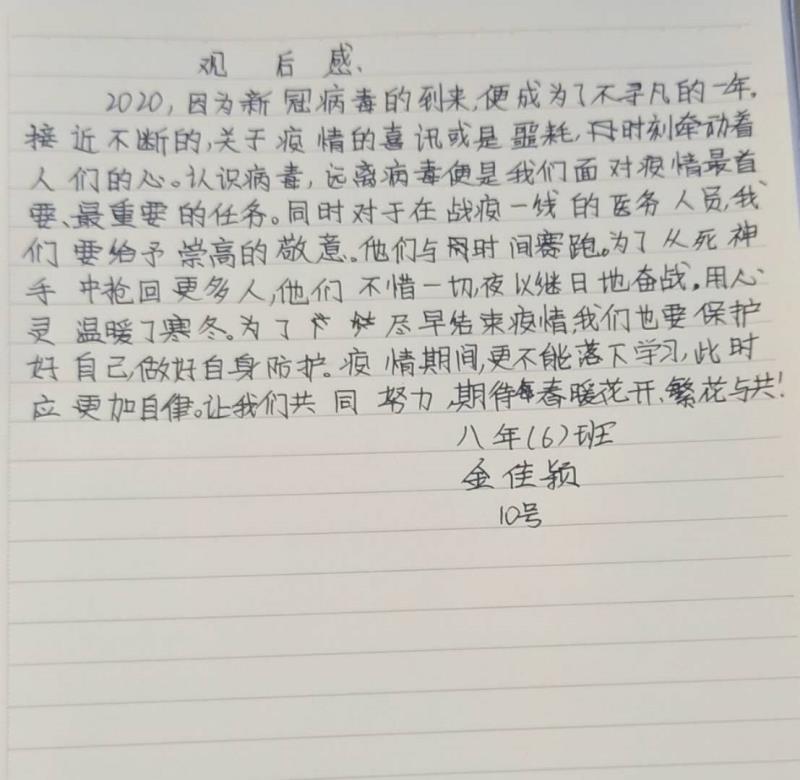 观后感、
2020,因为新冠病毒的到来,便成为了不寻凡的一年。
接近不断的,关于疫情的喜讯或是噩耗,时刻牵动着
人们的心。认识病毒,远离病毒便是我们面对疫情最首
要、最重要的任务。同时对于在战疫一线的医务人员,我
们要给予崇高的敬意。他们与时间赛跑。为了从死神
手中抢回更多人,他们不惜一切,夜以继日地奋战。用心
灵温暖了寒冬。为了尽早结束疫情,我们也要保护
好自己,做好自身防护。疫情期间,更不能落下学习,此时
应更加自律。让我们共同努力,期待春暖花开、繁花与共!
八年(6)班
金佳颖
10号